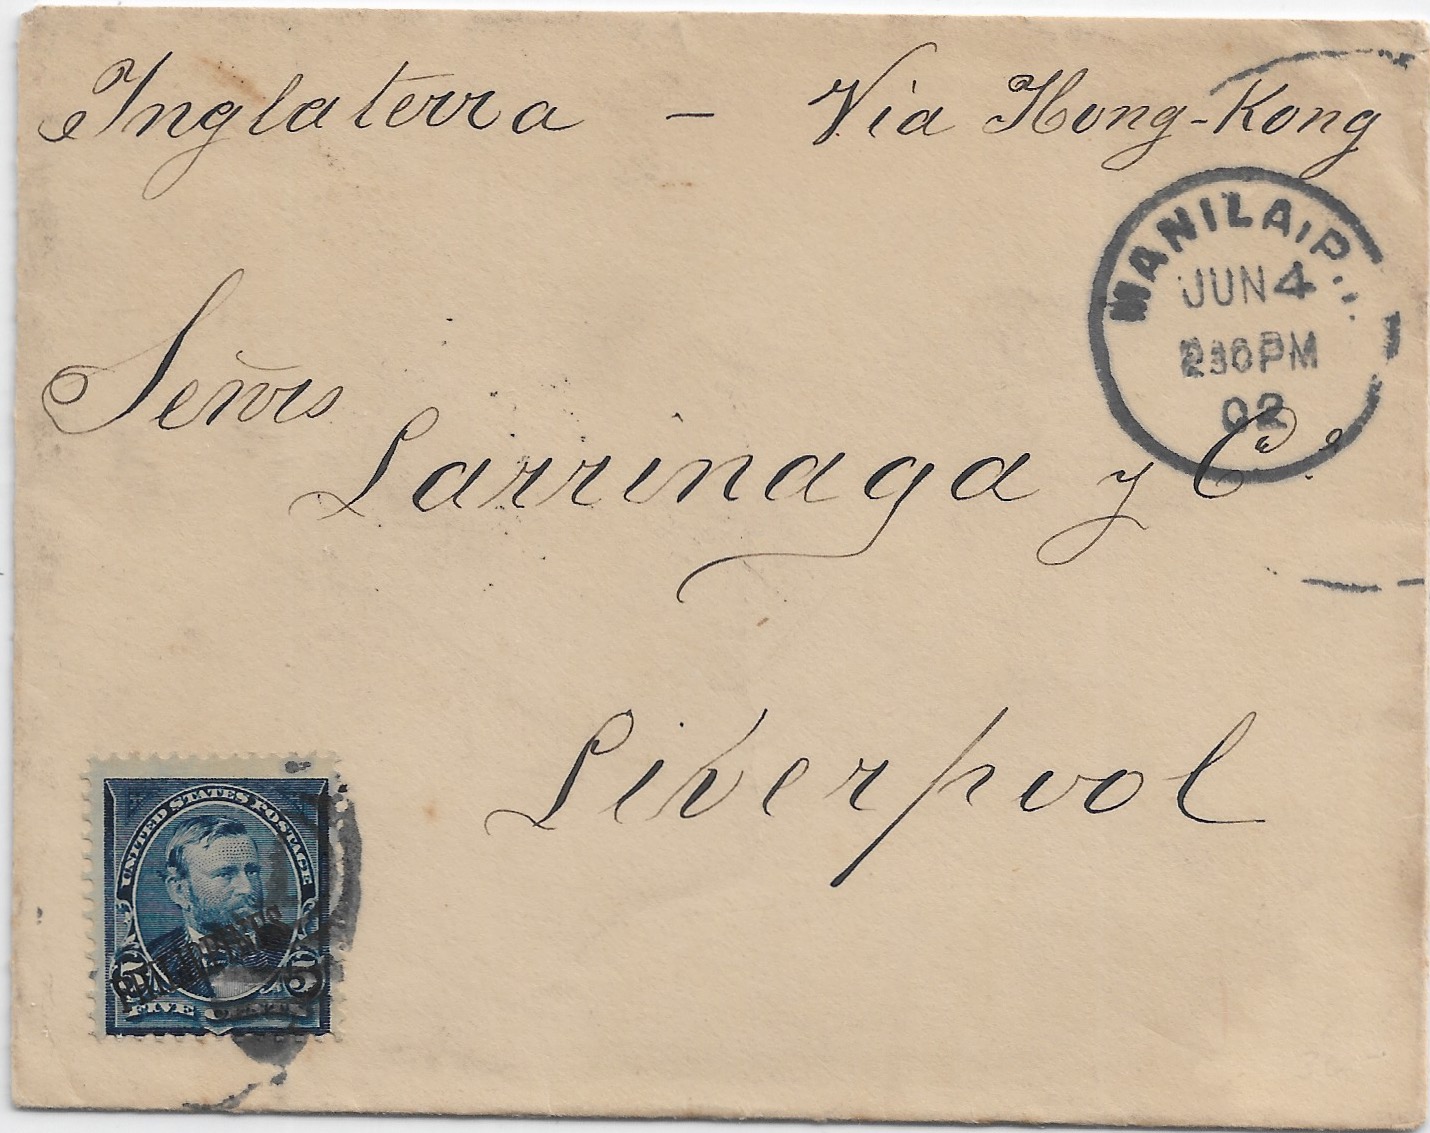 Inglaterra — Via Hong-Kong
MANILA, P.I.
JUN 4
230PM
02
Señrs
Larrinaga y Cª
Liverpool
UNITED STATES POSTAGE
PHILIPPINES
5 5
FIVE CENTS